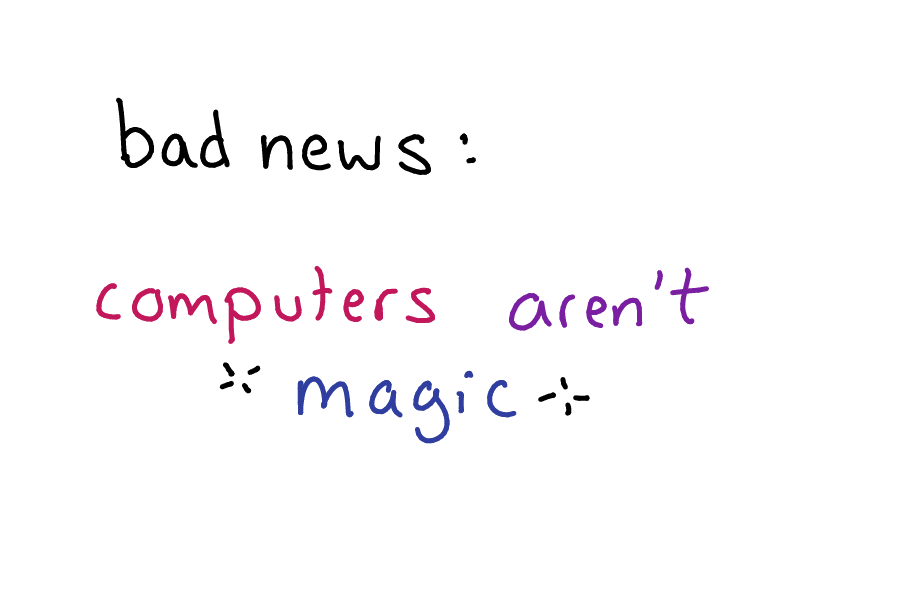 bad news:
computers aren't
magic